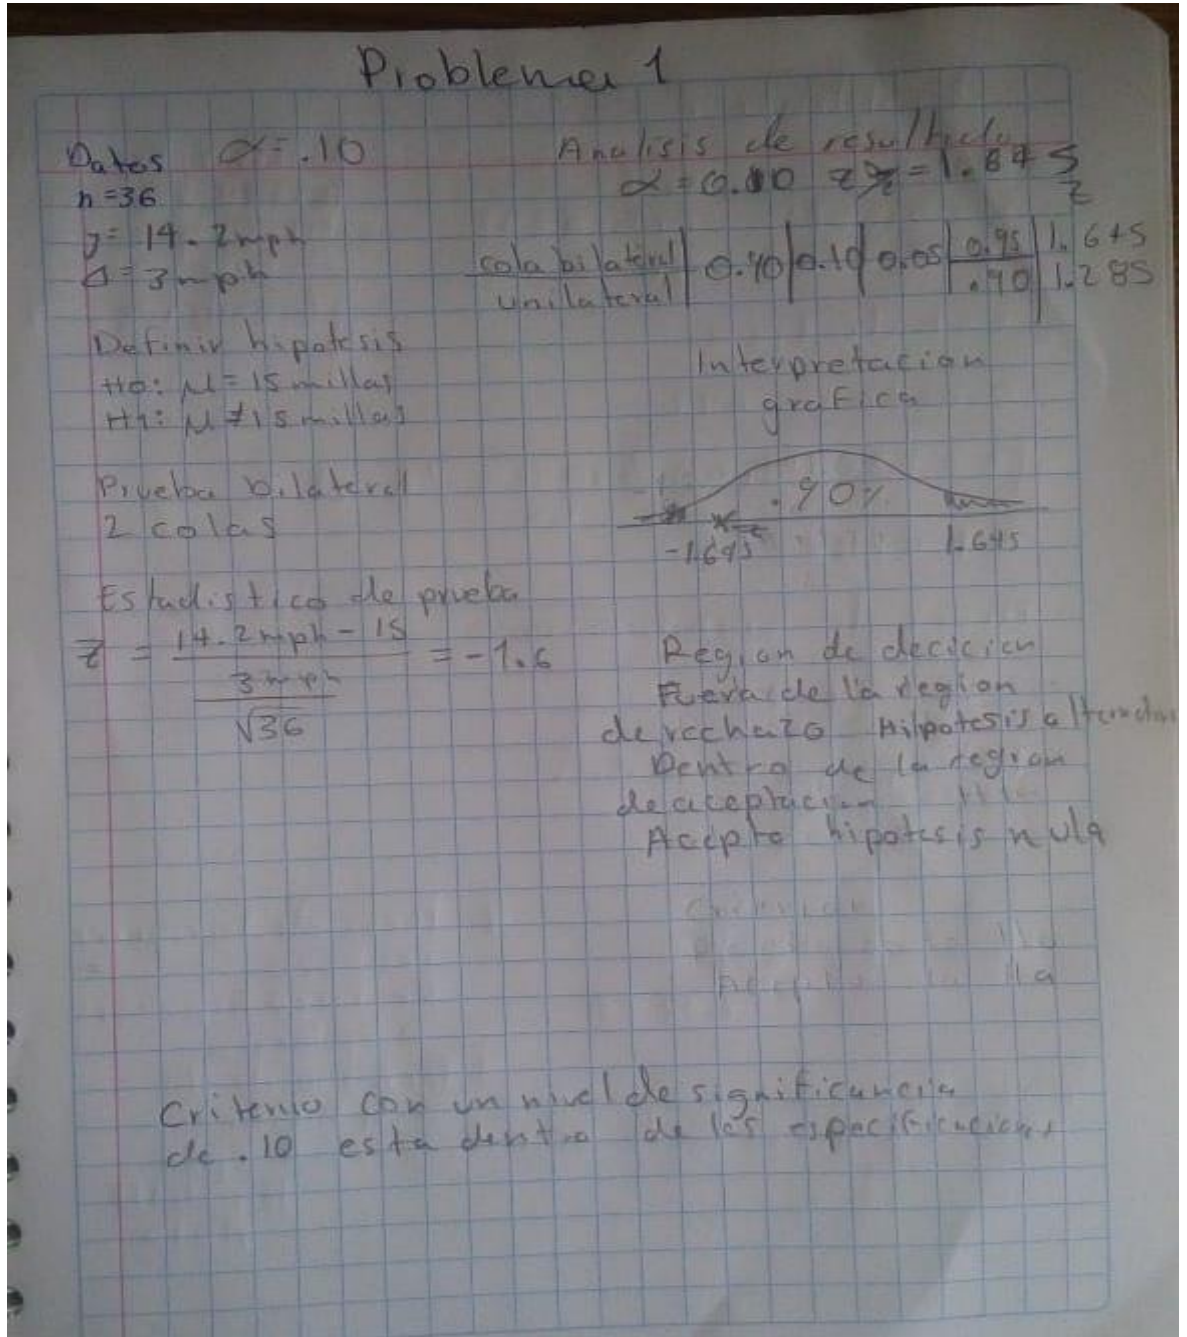 Problema 1
Datos α = .10
n = 36
y = 14.2 mph
= 3 mph
Definir hipotesis
Ho: μ = 15 millas
H1: μ ≠ 15 millas
Prueba bilateral
2 colas
Estadistico de prueba
Z = 14.2 mph - 15 = -1.6
3 mph
√36
Analisis de
α =
cola bilateral 0.10 0.05 0.95 1.645
unilateral .90 1.285
Interpretacion
grafica
.90%
-1.645 1.645
Region de decicion
Fuera de la region
de rechazo Hipotesis
Dentro de la region
de aceptacion
Acepto hipotesis nula
Criterio con un nivel de significancia
de .10 esta dentro de las